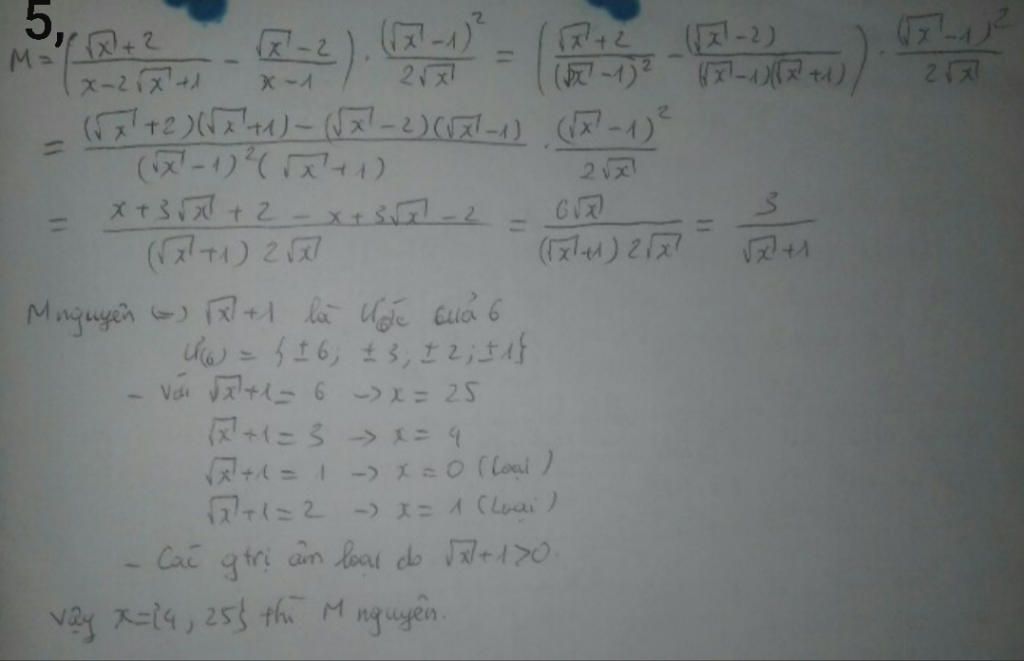 5,
M = ( (√x + 2)/(x - 2√x + 1) - (√x - 2)/(x - 1) ) · (√x - 1)²/(2√x) = ( (√x + 2)/(√x - 1)² - (√x - 2)/((√x - 1)(√x + 1)) ) · (√x - 1)²/(2√x)
= ((√x + 2)(√x + 1) - (√x - 2)(√x - 1))/((√x - 1)²(√x + 1)) · (√x - 1)²/(2√x)
= (x + 3√x + 2 - x + 3√x - 2)/((√x + 1) 2√x) = 6√x/((√x + 1) 2√x) = 3/(√x + 1)
M nguyên (=) √x + 1 là Ước của 6
Ư(6) = { ±6; ±3; ±2; ±1}
- Với √x + 1 = 6 -> x = 25
√x + 1 = 3 -> x = 4
√x + 1 = 1 -> x = 0 (Loại)
√x + 1 = 2 -> x = 1 (Loại)
- Các gtrị âm loại do √x + 1 > 0.
Vậy x = {4, 25} thì M nguyên.